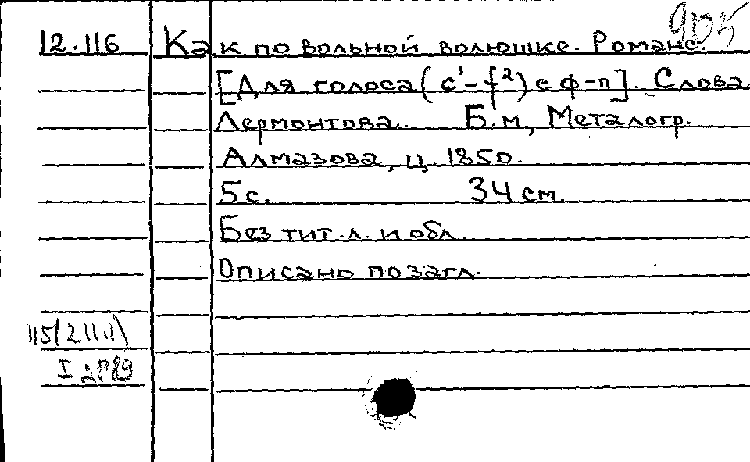 905
12.116 Как по вольной волюшке. Романс.
[Для голоса (c¹-f²) с ф-п]. Слова
Лермонтова. Б.м, Металогр.
Алмазова, ц. 1850.
5с. 34 см.
Без тит.л. и обл.
Описано по загл.